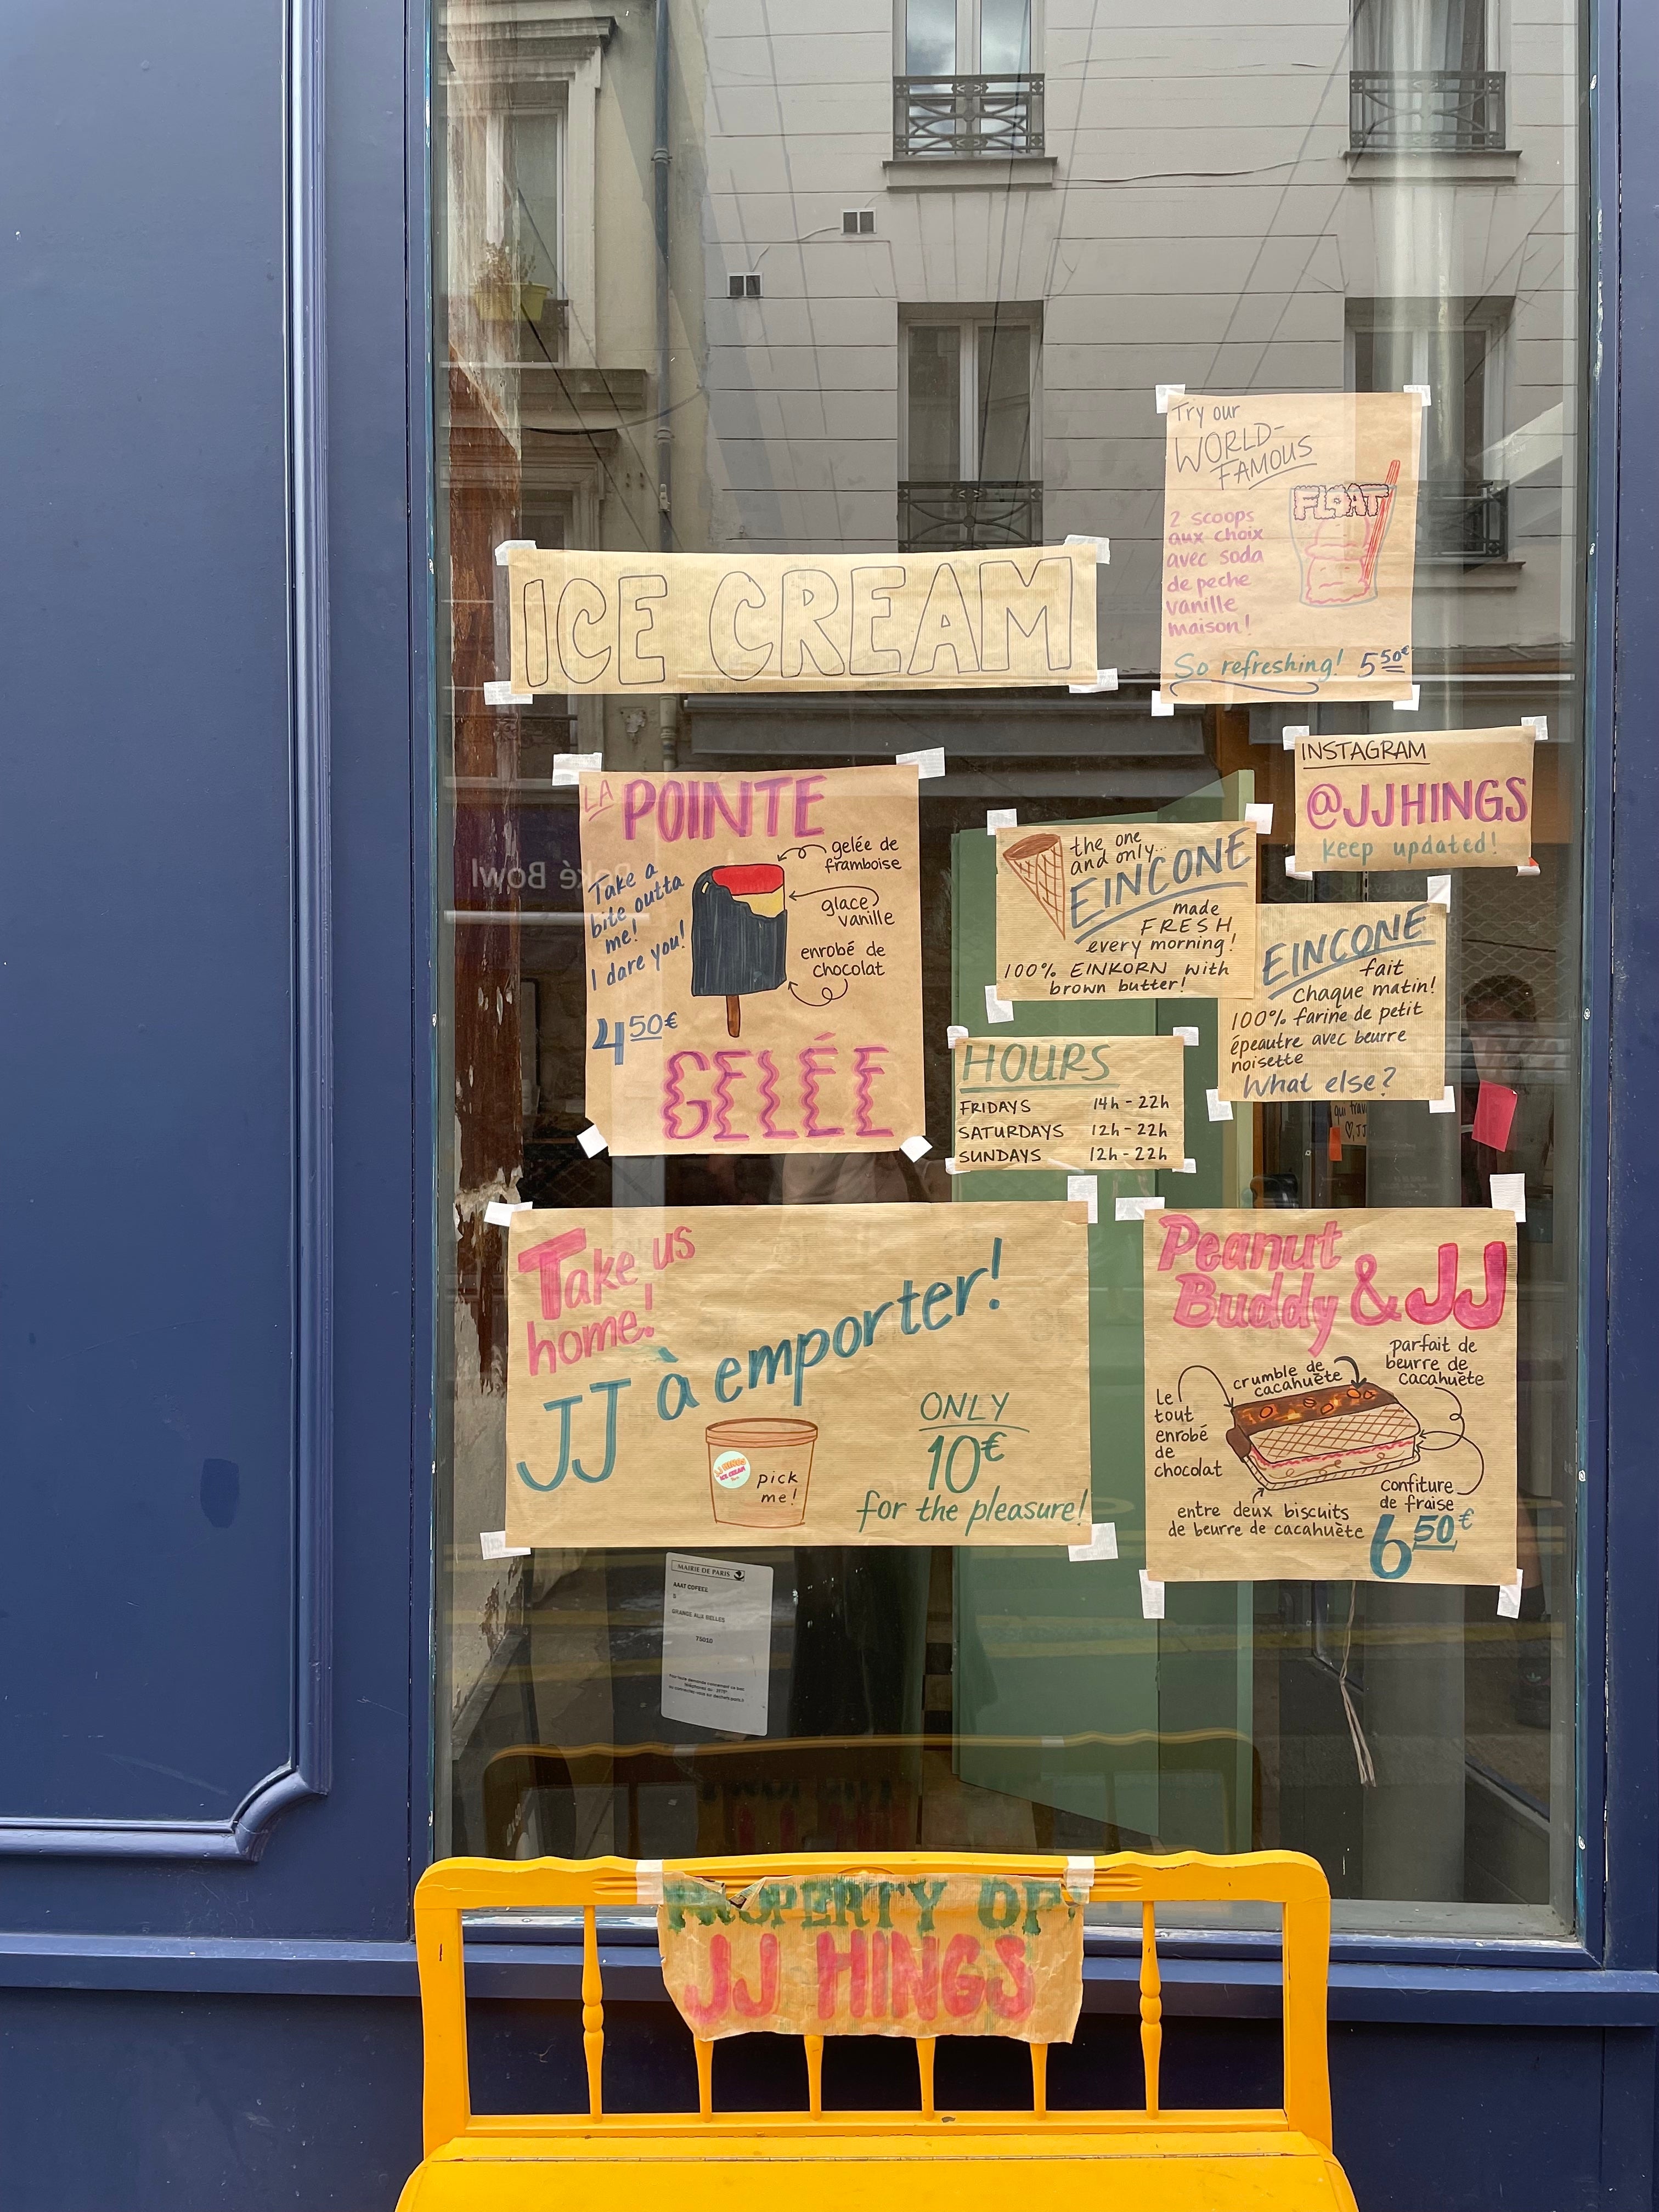 Try our
WORLD-
FAMOUS
FLOAT
2 scoops
aux choix
avec soda
de peche
vanille
maison!
So refreshing! 5⁵⁰€
ICE CREAM
INSTAGRAM
@JJHINGS
keep updated!
LA POINTE
Take a
bite outta
me!
I dare you!
gelée de
framboise
glace
vanille
enrobé de
chocolat
4⁵⁰€
GELÉE
Poké Bowl
the one
and only...
EINCONE
made
FRESH
every morning!
100% EINKORN with
brown butter!
EINCONE
fait
chaque matin!
100% farine de petit
épeautre avec beurre
noisette
What else?
qui trav
♡, JJ
HOURS
FRIDAYS 14h-22h
SATURDAYS 12h-22h
SUNDAYS 12h-22h
Take us
home!
JJ à emporter!
JJ HINGS
ICE CREAM
pick
me!
ONLY
10€
for the pleasure!
Peanut
Buddy & JJ
parfait de
beurre de
cacahuète
crumble de
cacahuète
le
tout
enrobé
de
chocolat
confiture
de fraise
entre deux biscuits
de beurre de cacahuète
6⁵⁰€
MAIRIE DE PARIS
AAAT COFEE2
5
GRANGE AUX BELLES
75010
PROPERTY OF:
JJ HINGS